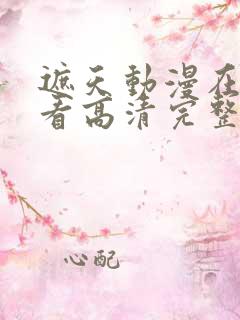 遮天動漫在
看高清完整
心配